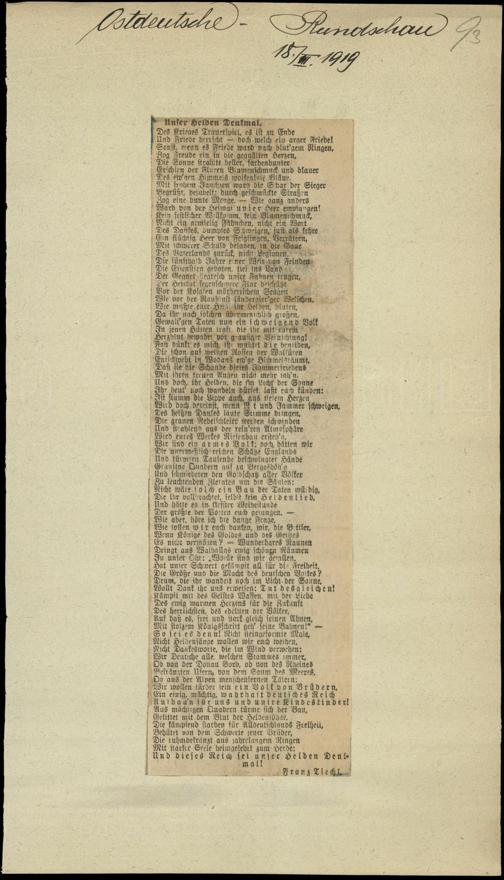 Ostdeutsche - Rundschau
93
18./III. 1919
Unser Helden Denkmal.
Des Krieges Trauerspiel, es ist zu Ende
Und Friede herrscht — doch welch ein arger Friede!
Sonst, wenn es Friede ward nach blut'gem Ringen,
Zog Freude ein in die gequälten Herzen,
Die Sonne strahlte heller, farbenbunter
Erschien der Fluren Blumenschmuck und blauer
Des ew'gen Himmels wolkenlose Bläue.
Mit frohem Jauchzen ward die Schar der Sieger
Begrüßt, bejubelt; durch geschmückte Straßen
Zog eine bunte Menge. — Wie ganz anders
Ward von der Heimat unser Heer empfangen!
Kein festlicher Willkomm, kein Blumenschmuck,
Nicht ein armselig Fähnchen, nicht ein Wort
Des Dankes, dumpfes Schweigen, fast als kehre
Ein flüchtig Heer von Feiglingen, Verrätern,
Mit schwerer Schuld beladen, in die Gaue
Des Vaterlands zurück, nicht Legionen,
Die fünfthalb Jahre einer Welt von Feinden
Die Eisenstirn geboten, tief ins Land
Der Gegner siegreich unsre Fahnen trugen,
Der Heimat segenschwere Flur beschützt
Vor der Kosaken mörderischem Sengen
Wie vor der Raubsucht ländergier'ger Welschen.
Wie mußte eure Herzen, ihr Helden, bluten,
Da ihr nach solchen übermenschlich großen,
Gewalt'gen Taten nun ein schweigend Volk
In jenen Hütten traft, die ihr mit eurem
Herzblut bewahrt vor grausiger Vernichtung!
Fast dünkt es mich, ihr müßtet die beneiden,
Die schon auf weißen Rossen der Walküren
Entschwebt in Wodans ew'ge Himmelsräume,
Daß sie die Schande dieses Jammerfriedens
Mit ihren treuen Augen nicht mehr sah'n.
Und doch, ihr Helden, die im Licht der Sonne
Ihr heut' noch wandeln dürfet, laßt euch künden:
Ist stumm die Lippe auch, aus tiefem Herzen
Wird doch dereinst, wenn Not und Jammer schweigen,
Des heißen Dankes laute Stimme dringen,
Die grauen Nebelschleier werden schwinden
Und strahlend aus der reineren Atmosphäre
Wird eures Werkes Riesenbau ersteh'n.
Wir sind ein armes Volk; doch hätten wir
Die unermeßlich reichen Schätze Englands
Und türmten Tausende beschwingter Hände
Granitne Quadern auf zu Bergeshöh'n
Und schmiedeten den Goldschatz aller Völker
Zu leuchtenden Zieraten um die Säulen:
Nicht wäre solch ein Bau der Taten würdig,
Die ihr vollbrachtet, selbst kein Heldenlied,
Und hätte es in tiefster Weihestunde
Der größte der Poeten euch gesungen. —
Wie aber, höre ich die bange Frage,
Wie sollen wir euch danken, wir, die Bettler,
Wenn Könige des Goldes und des Geistes
Es nicht vermöchten? — Wunderbares Raunen
Dringt aus Walhallas ewig schönen Räumen
Zu unser Ohr: „Wofür sind wir gefallen,
Hat unser Schwert gekämpft als für die Freiheit,
Die Größe und die Macht des deutschen Volkes?
Drum, die ihr wandelt noch im Licht der Sonne,
Wollt Dank ihr uns erweisen: Tut desgleichen!
Kämpft mit des Geistes Waffen, mit der Liebe
Des ewig warmen Herzens für die Zukunft
Des herrlichsten, des edelsten der Völker,
Auf daß es, frei und stark gleich seinen Ahnen,
Mit stolzem Königsschritt geh' seine Bahnen!" —
So sei es denn! Nicht steingeformte Male,
Nicht Heldensänge wollen wir euch weihen,
Nicht Dankesworte, die im Wind verwehen:
Wir Deutsche alle, welchen Stammes immer,
Ob von der Donau Bord, ob von des Rheines
Bekränzten Ufern, von dem Saum des Meeres,
Ob aus der Alpen menschenfernen Tälern:
Wir wollen fürder sein ein Volk von Brüdern,
Ein einig, mächtig, wahrhaft deutsches Reich
Aufbau'n für uns und unsre Kindeskinder!
Aus mächtigen Quadern türme sich der Bau,
Gekittet mit dem Blut der Heldensöhne,
Die kämpfend starben für Alldeutschlands Freiheit,
Behütet von dem Schwerte jener Brüder,
Die ruhmbekränzt aus jahrelangem Ringen
Mit starker Seele heimgekehrt zum Herde:
Und dieses Reich sei unser Helden Denk-
mal!
Franz Tiechl.